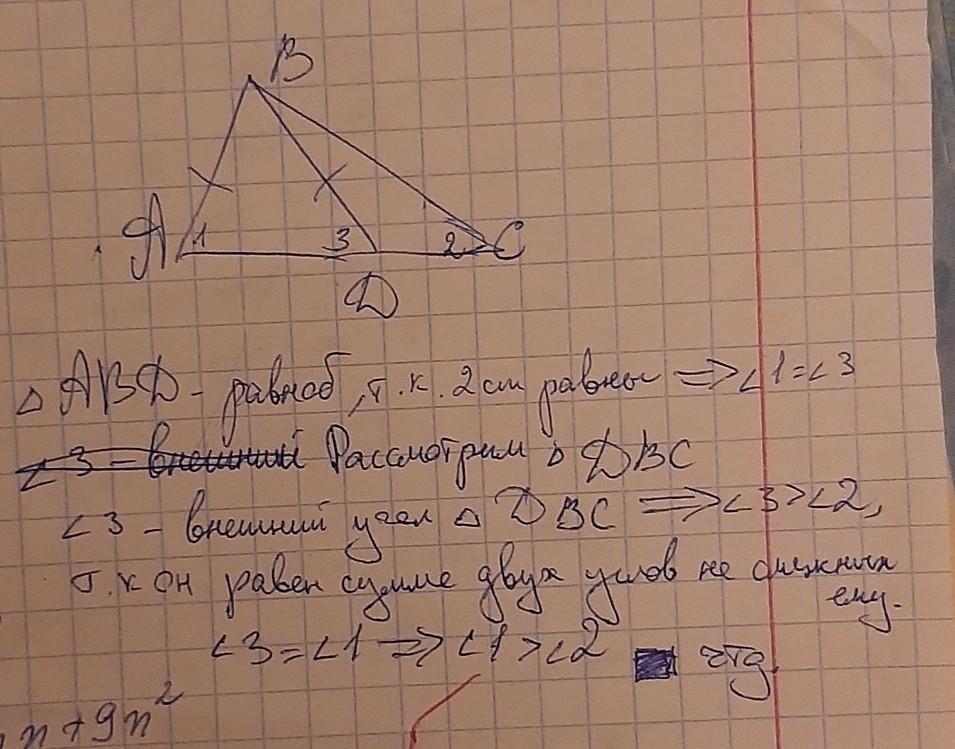 B
A 1 3 2 C
D
△ ABD - равноб, т.к. 2 ст равны => ∠1=∠3
∠3 - внешний Рассмотрим △ DBC
∠3 - внешний угол △ DBC => ∠3>∠2,
т.к он равен сумме двух углов не смежных
ему.
∠3=∠1 => ∠1>∠2 чтд.
n+9n²